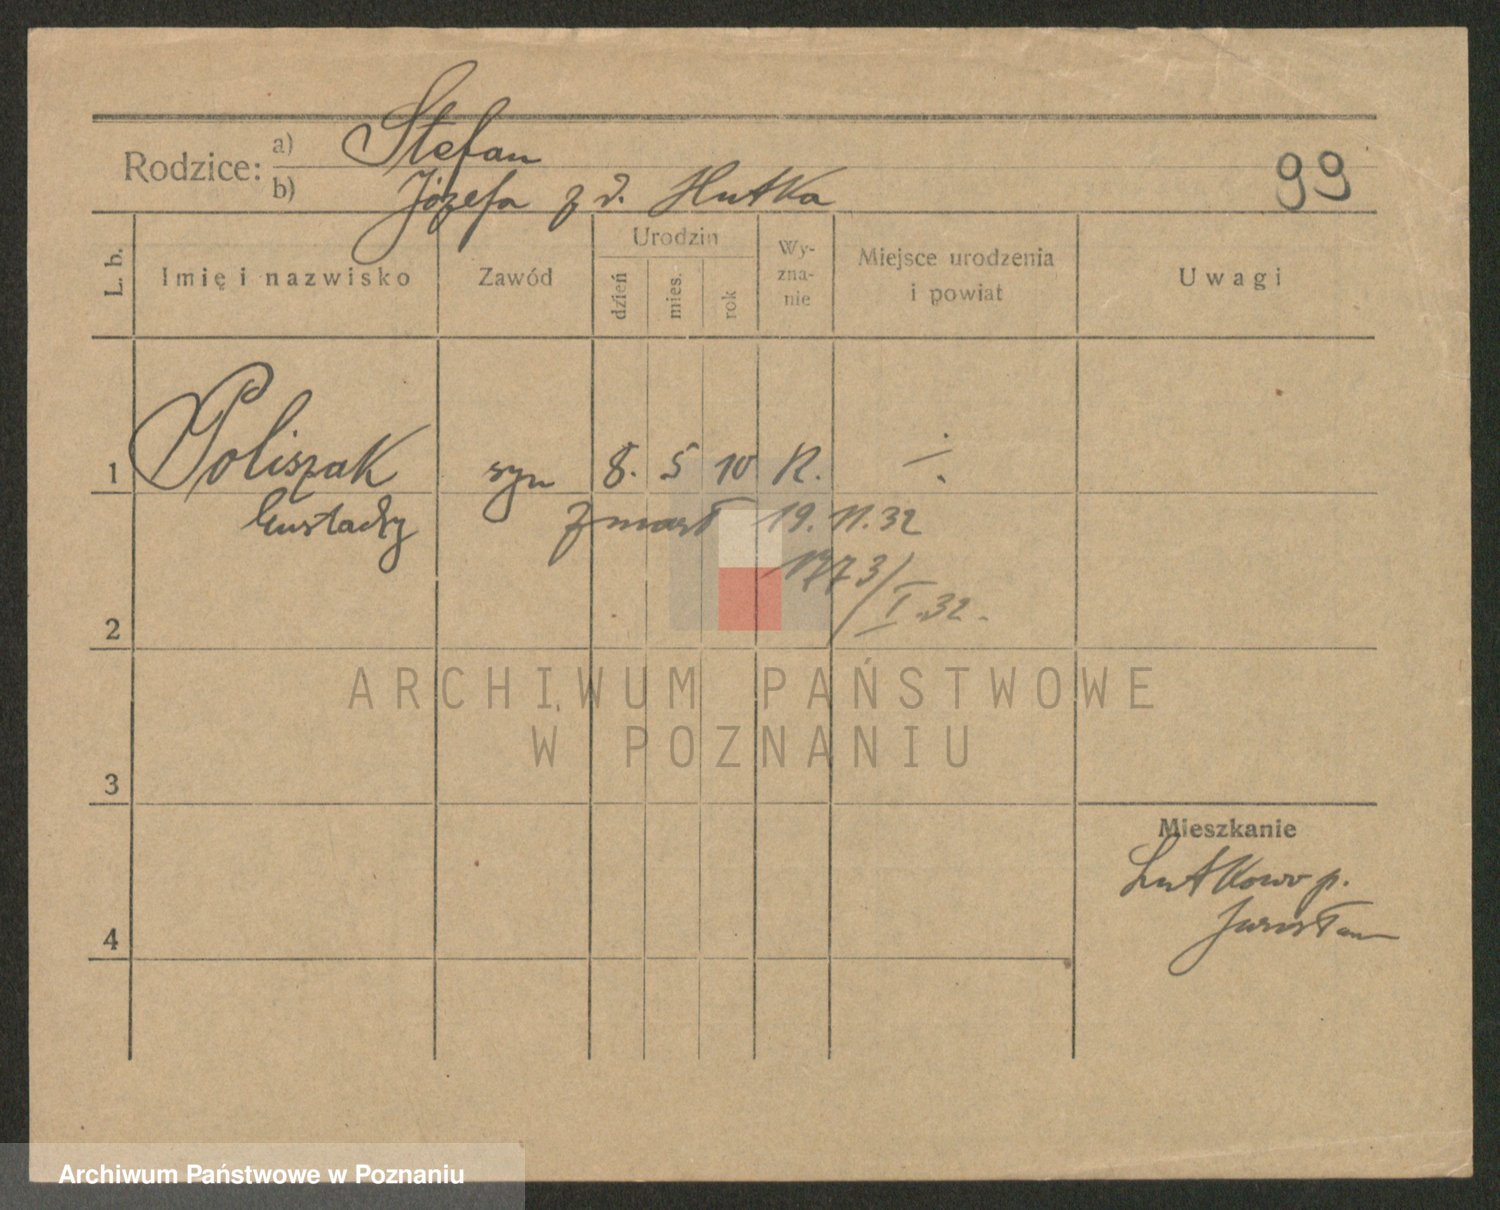 Rodzice: a) Stefan
b) Józefa z d. Hutka
99
L. b. Imię i nazwisko Zawód Urodzin dzień mies. rok Wy-zna-nie Miejsce urodzenia i powiat Uwagi
1 Poliszak syn 8. 5 10 R. ÷
Eustachy zmarł 19. 11. 32
1773/I.32.
2
ARCHIWUM PAŃSTWOWE
W POZNANIU
3
Mieszkanie
Lutkowo p.
4
Archiwum Państwowe w Poznaniu